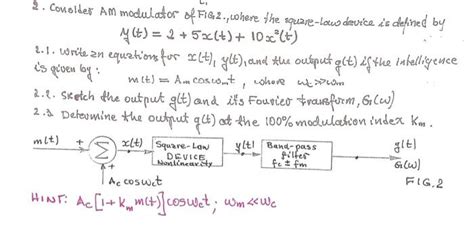 2. Consider AM modulator of FIG.2., where the square-law device is defined by
y(t) = 2 + 5x(t) + 10x²(t)
2.1. Write an equations for x(t), y(t), and the output g(t) if the intelligence
is given by:
m(t) = Am cos ωmt, where ωc>>ωm
2.2. Sketch the output g(t) and its Fourier transform, G(ω)
2.3 Determine the output g(t) at the 100% modulation index Km.
m(t) + Σ x(t) Square-Law DEVICE Nonlinearity y(t) Band-pass filter fc ± fm g(t)
+
G(ω)
Ac cos ωct
FIG.2
HINT: Ac[1+kmm(t)]cosωct; ωm<<ωc